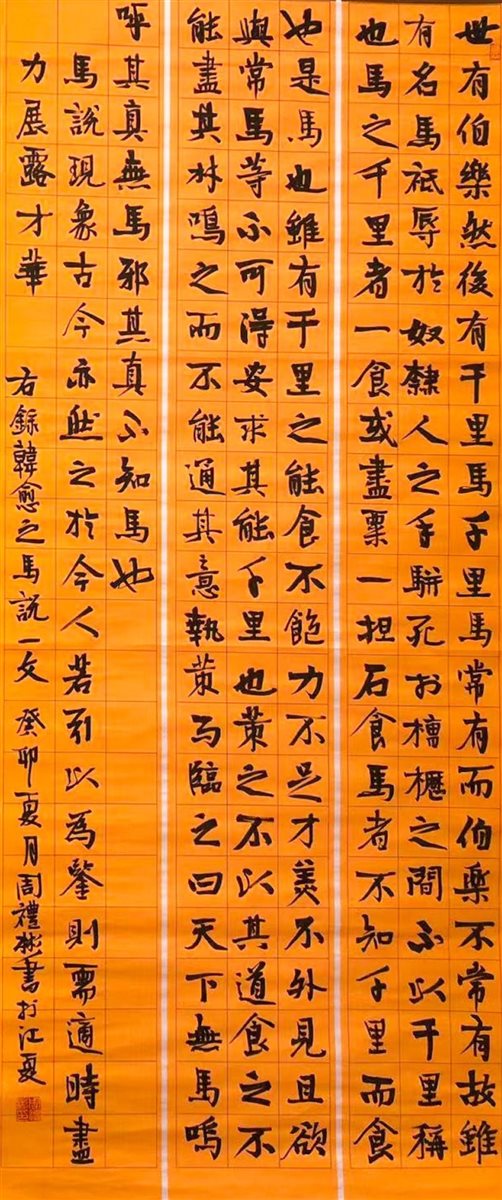 世有伯樂然後有千里馬千里馬常有而伯樂不常有故雖
有名馬祇辱於奴隸人之手駢死於槽櫪之間不以千里稱
也馬之千里者一食或盡粟一担石食馬者不知千里而食
也是馬也雖有千里之能食不飽力不足才美不外見且欲
與常馬等不可得安求其能千里也策之不以其道食之不
能盡其材鳴之而不能通其意執策而臨之曰天下無馬嗚
呼其真無馬邪其真不知馬也
馬說現象古今亦然之於今人若引以為鑒則需適時盡
力展露才華
右錄韓愈之馬說一文 癸卯夏月周禮彬書於江夏